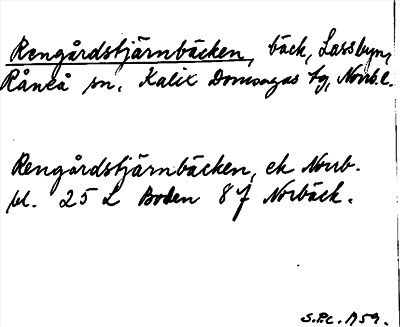 Rengårdstjärnbäcken, bäck, Lassbyn,
Råneå sn, Kalix Domsagas tg, Norrb.l.
Rengårdstjärnbäcken, ek Norrb.
bl. 25 L Boden 8 f Norbäck.
S.P.C. 1959.